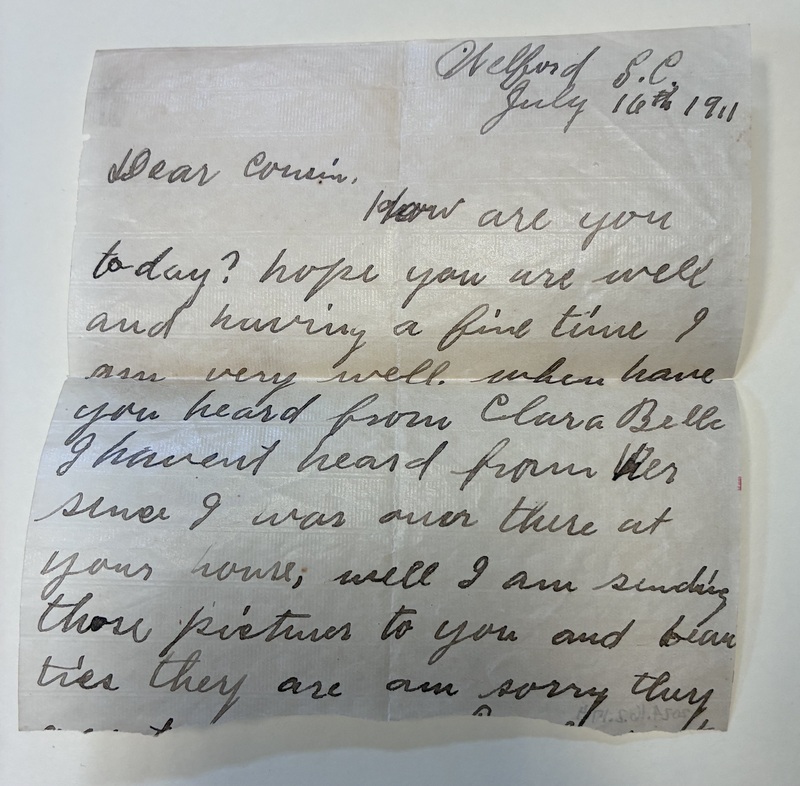 Welford S.C.
July 16th 1911
Dear Cousin.
How are you
today? hope you are well
and having a fine time I
am very well. when have
you heard from Clara Belle
I havent heard from Her
since I was over there at
your house, well I am sending
those pictures to you and beau
ties they are am sorry they